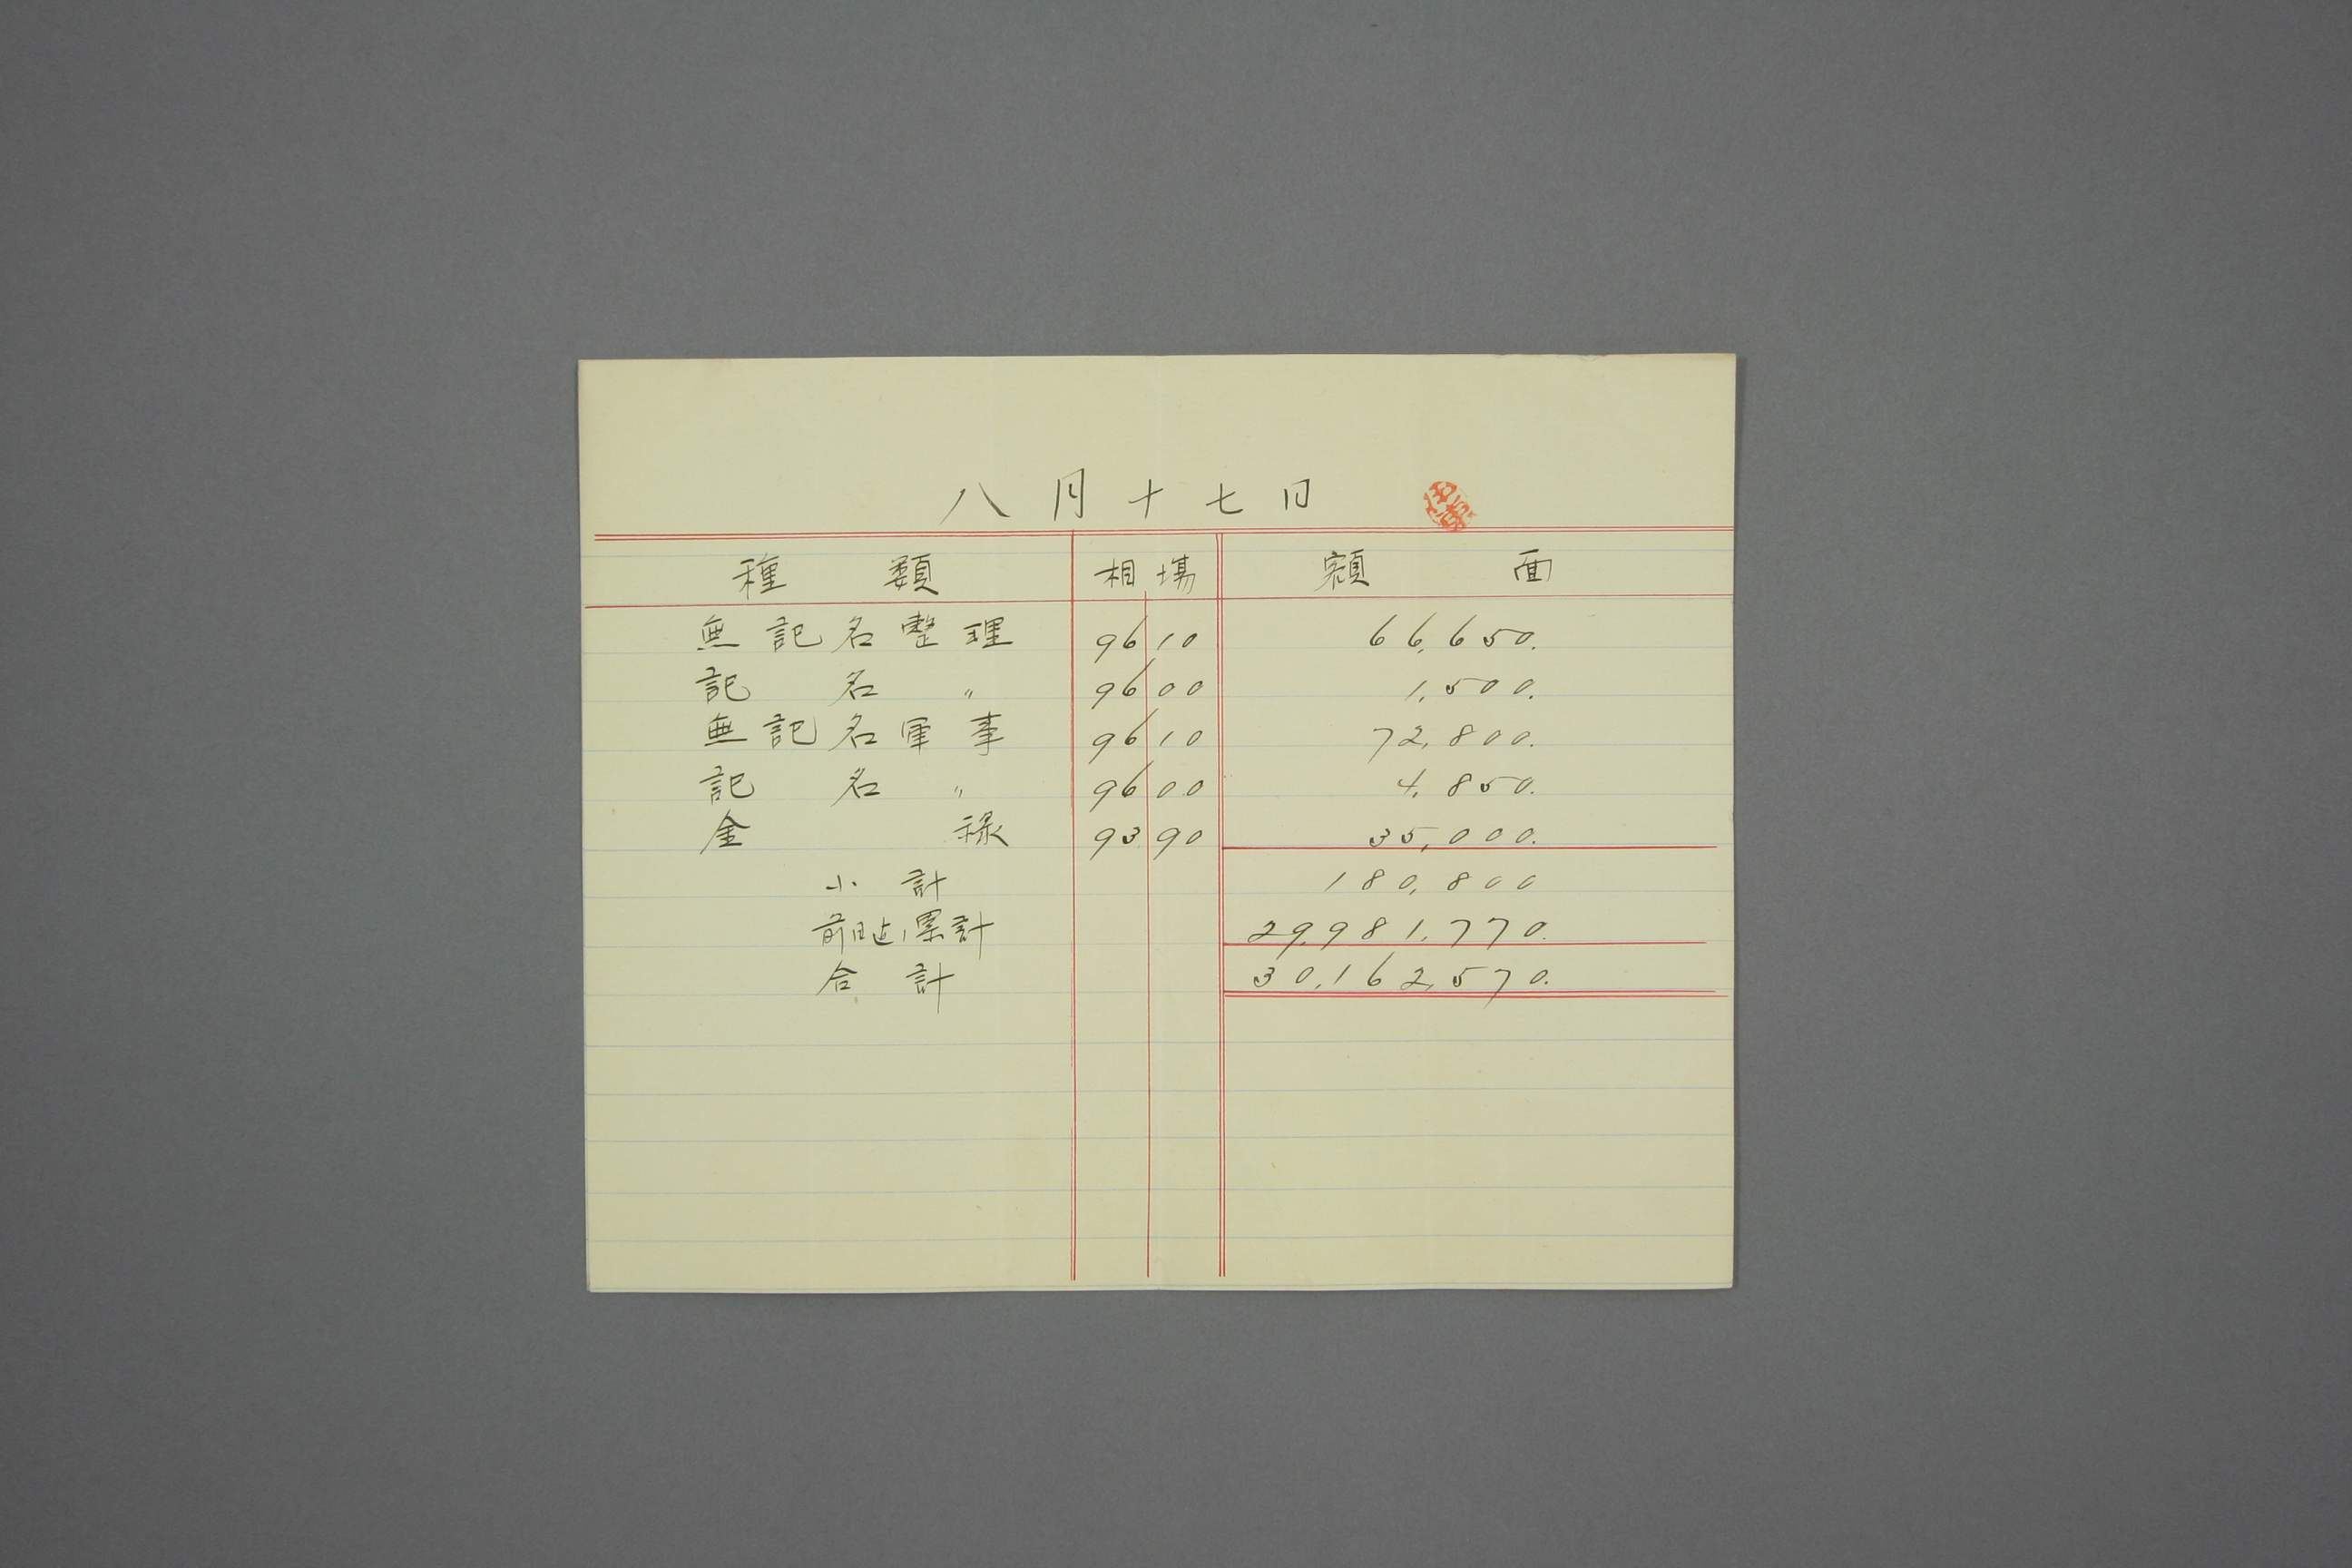 八月十七日
種類 相場 額面
無記名整理 96 10 66,650.
記名 〃 96 00 1,500.
無記名軍事 96 10 72,800.
記名 〃 96 00 4,850.
金禄 93 90 35,000.
小計 180,800
前日迄ノ累計 29,981,770.
合計 30,162,570.